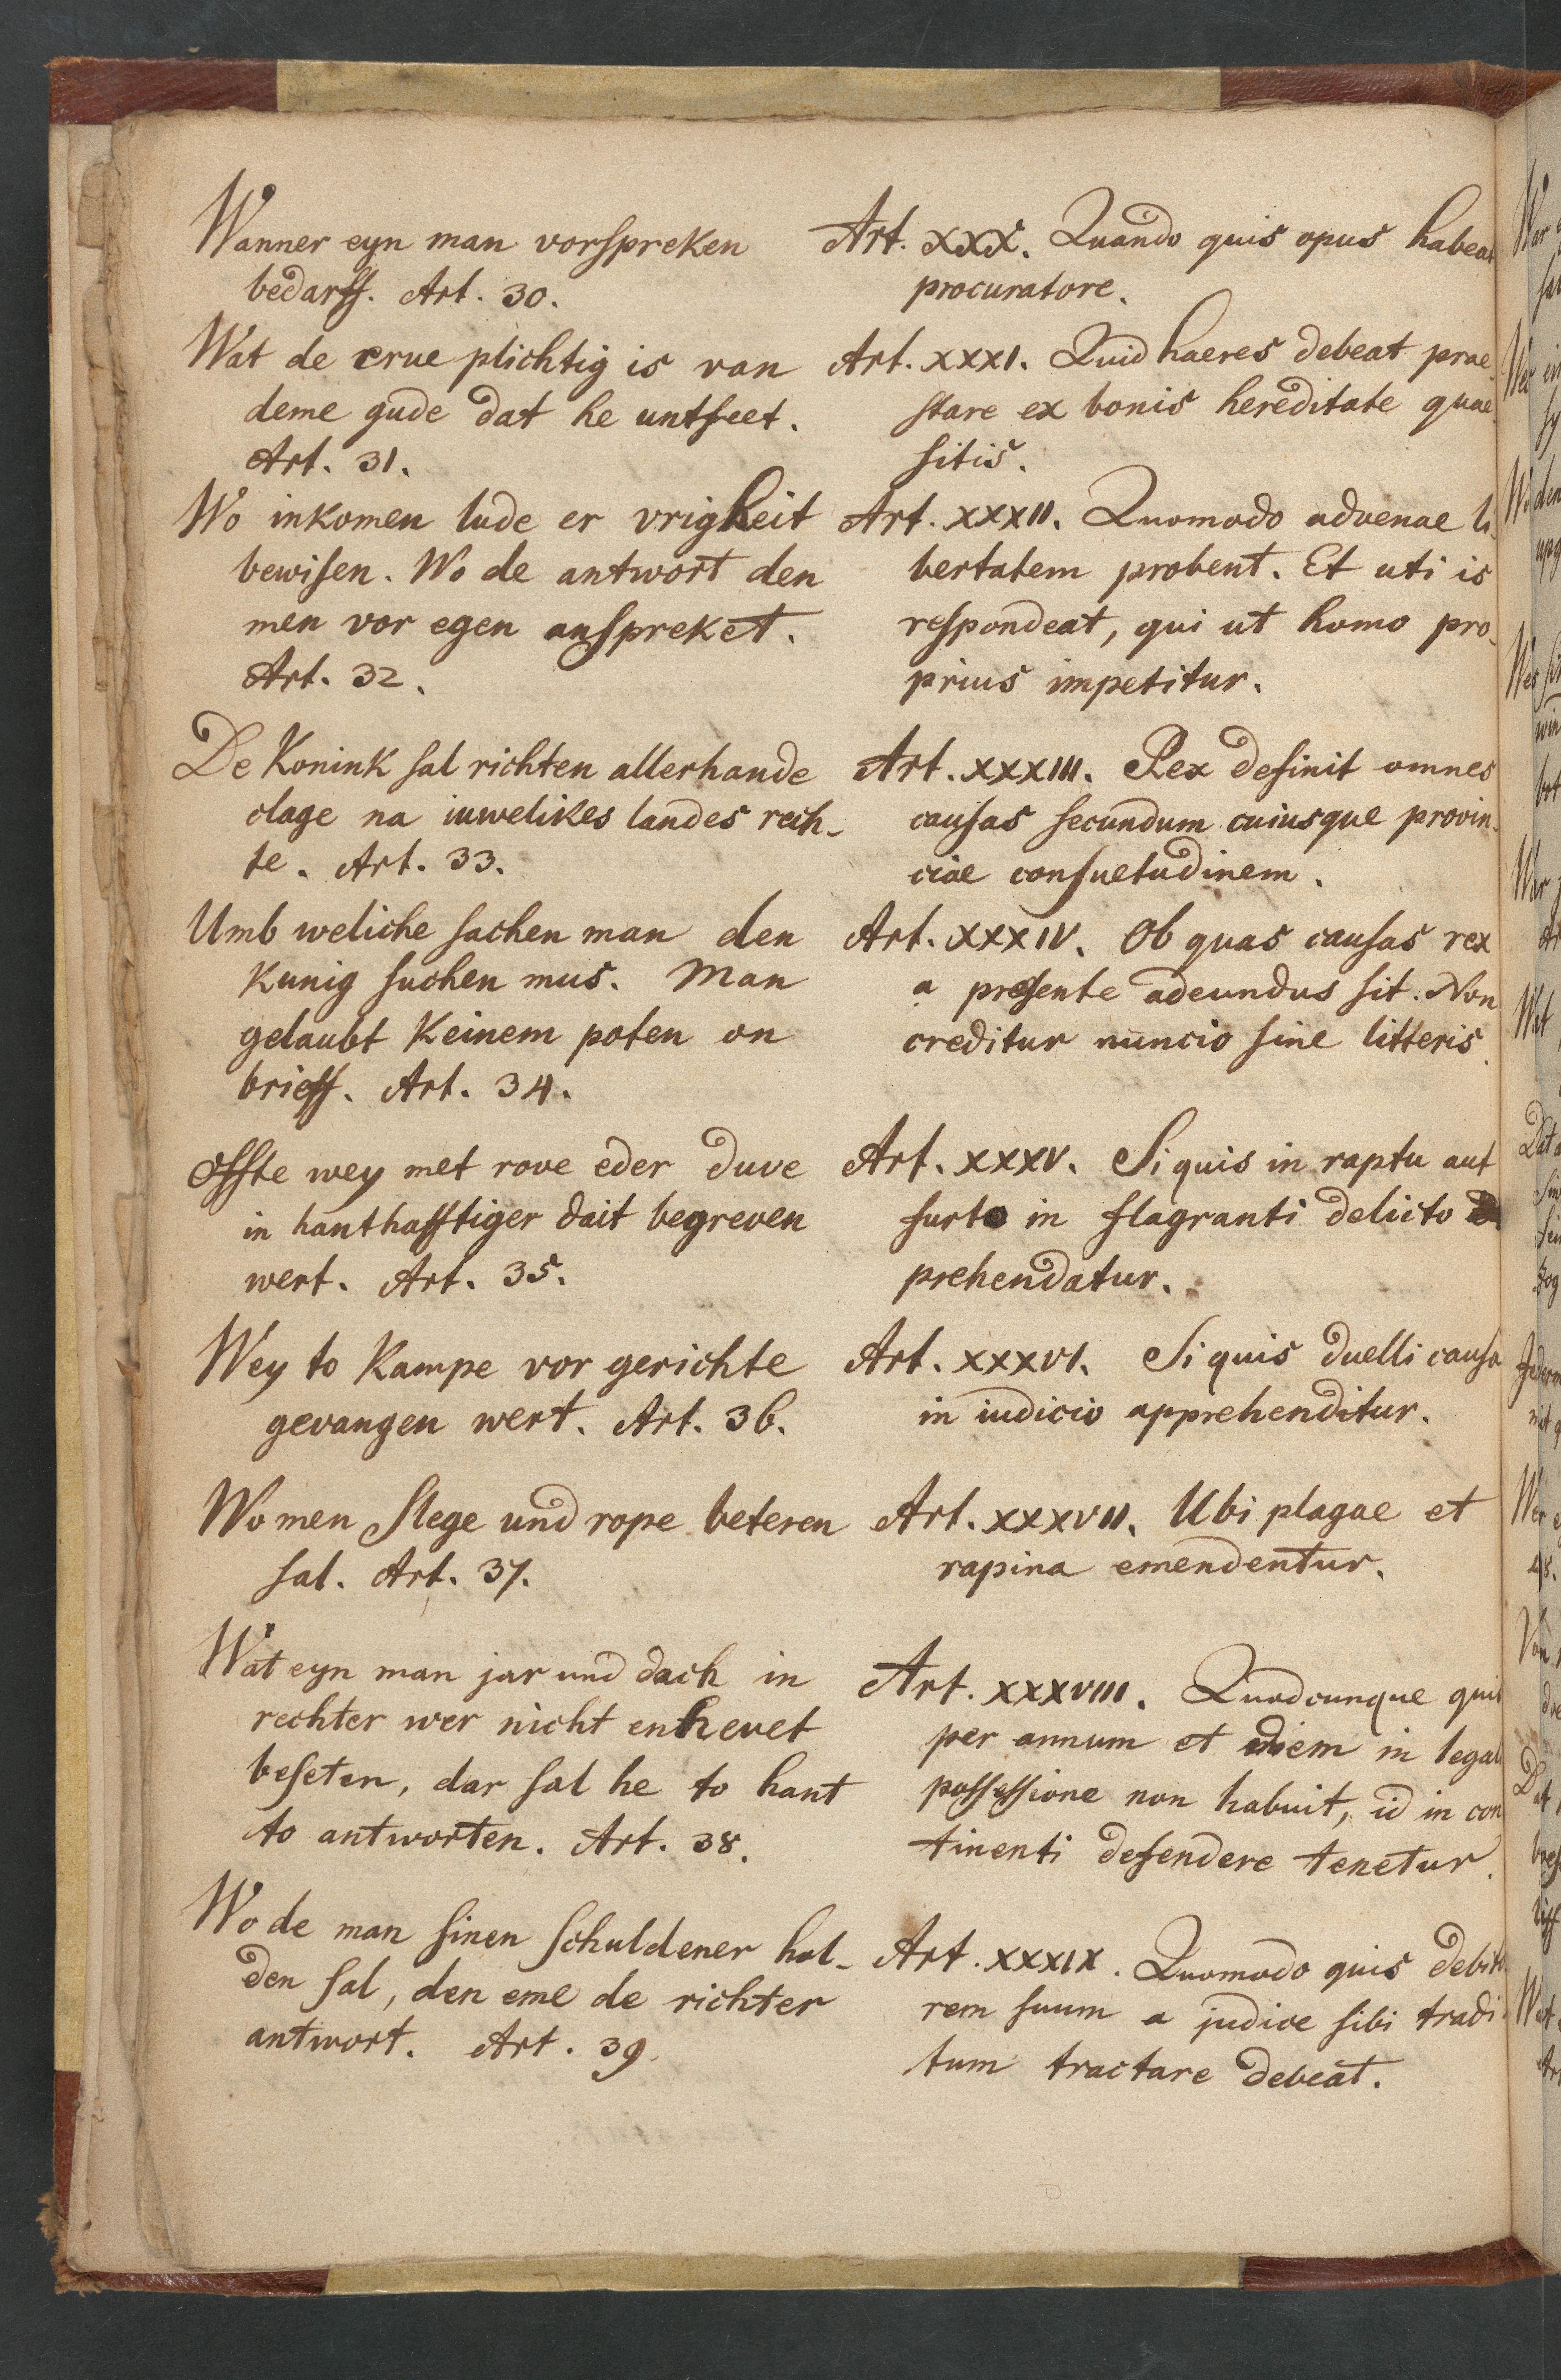 Wanner eyn man vorspreken
bedarff. Art. 30.
Wat de erve plichtig is van
deme gude dat he untfeet.
Art. 31.
Wo inkomen lude er vrigheit
bewisen. Wo de antwort den
men vor egen anspreket.
Art. 32.
De Konink sal richten allerhande
clage na iuwelikes landes rech-
te. Art. 33.
Umb weliche sachen man den
Kunig suchen mus. Man
gelaubt Keinem poten on
brieff. Art. 34.
Offte wey met rove eder duve
in hanthafftiger dait begreven
wert. Art. 35.
Wey to Kampe vor gerichte
gevangen wert. Art. 36.
Wo men Slege und rope beteren
sal. Art. 37.
Wat eyn man jar und dach in
rechter wer nicht enhevet
beseten, dar sal he to hant
to antworten. Art. 38.
Wo de man sinen schuldener hal-
den sal, den eme de richter
antwort. Art. 39.
Art. XXX. Quando quis opus habeat
procuratore.
Art. XXXI. Quid haeres debeat prae-
stare ex bonis hereditate quae-
sitis.
Art. XXXII. Quomodo advenae li-
bertatem probent. Et uti is
respondeat, qui ut homo pro-
prius impetitur.
Art. XXXIII. Rex definit omnes
causas secundum cuiusque provin-
ciae consuetudinem.
Art. XXXIV. Ob quas causas rex
a presente adeundus sit. Non
creditur nuncio sine litteris.
Art. XXXV. Si quis in raptu aut
furto in flagranti delicto
prehendatur.
Art. XXXVI. Si quis duelli causa
in iudicio apprehenditur.
Art. XXXVII. Ubi plagae et
rapina emendentur.
Art. XXXVIII. Quodcunque quis
per annum et diem in legali
possessione non habuit, id in con
tinenti defendere tenetur.
Art. XXXIX. Quomodo quis debito
rem suum a judice sibi tradi-
tum tractare debeat.